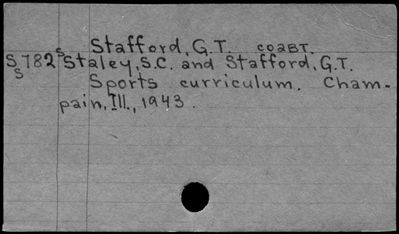 Stafford, G.T. соавт.
S 782 s Staley, S.C. and Stafford, G.T.
s Sports curriculum. Cham-
pain, Ill., 1943.